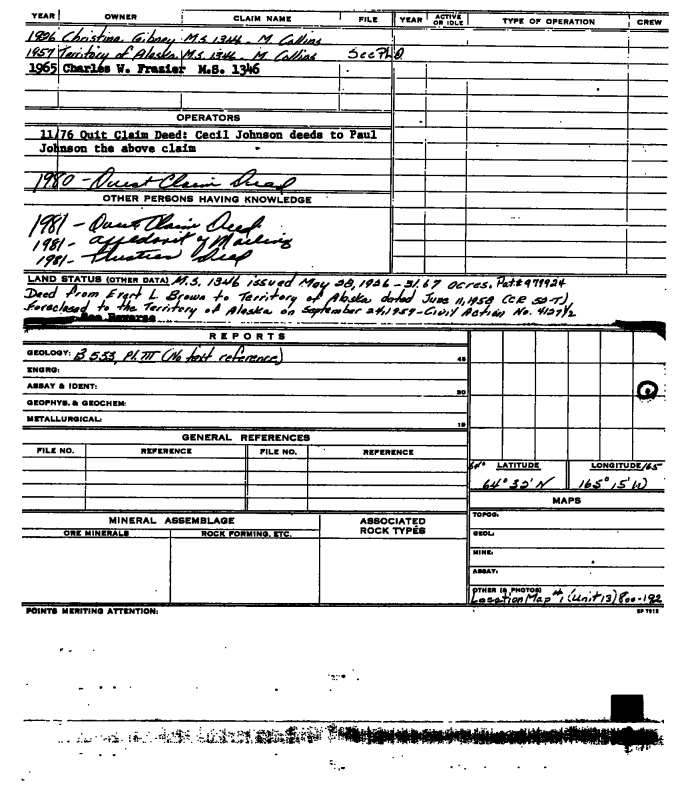 YEAR OWNER CLAIM NAME FILE YEAR ACTIVE OR IDLE TYPE OF OPERATION CREW
1926 Christina Gibney M.S. 1346 - M Collins
1957 Territory of Alaska M.S. 1346 - M Collins See Ph.D.
1965 Charles W. Frazier M.S. 1346
OPERATORS
11/76 Quit Claim Deed: Cecil Johnson deeds to Paul
Johnson the above claim
1980 - Quit Claim Deed
OTHER PERSONS HAVING KNOWLEDGE
1981 - Quit Claim Deed
1981 - Affidavit of Mailing
1981 - Trustees Deed
LAND STATUS (OTHER DATA) M.S. 1346 issued May 28, 1926 - 31.67 acres. Pat.# 979924
Deed from Evart L. Brown to Territory of Alaska dated June 11, 1958 (CR 52-T),
Foreclosed to the Territory of Alaska on September 24, 1957 - Civil Action No. 4127 1/2
See Reverse
REPORTS
GEOLOGY: B 553, Pl. III (No text reference) 45
ENGRG:
ASSAY & IDENT: 30
GEOPHYS. & GEOCHEM:
METALLURGICAL: 15
GENERAL REFERENCES
FILE NO. REFERENCE FILE NO. REFERENCE
64° LATITUDE LONGITUDE/65
64° 32' N 165° 15' W
MAPS
MINERAL ASSEMBLAGE ASSOCIATED ROCK TYPES
ORE MINERALS ROCK FORMING, ETC.
TOPOG:
GEOL:
MINE:
ASSAY:
OTHER (& PHOTOS)
Location Map #1 (Unit 13) 800-192
POINTS MERITING ATTENTION: SP 7915